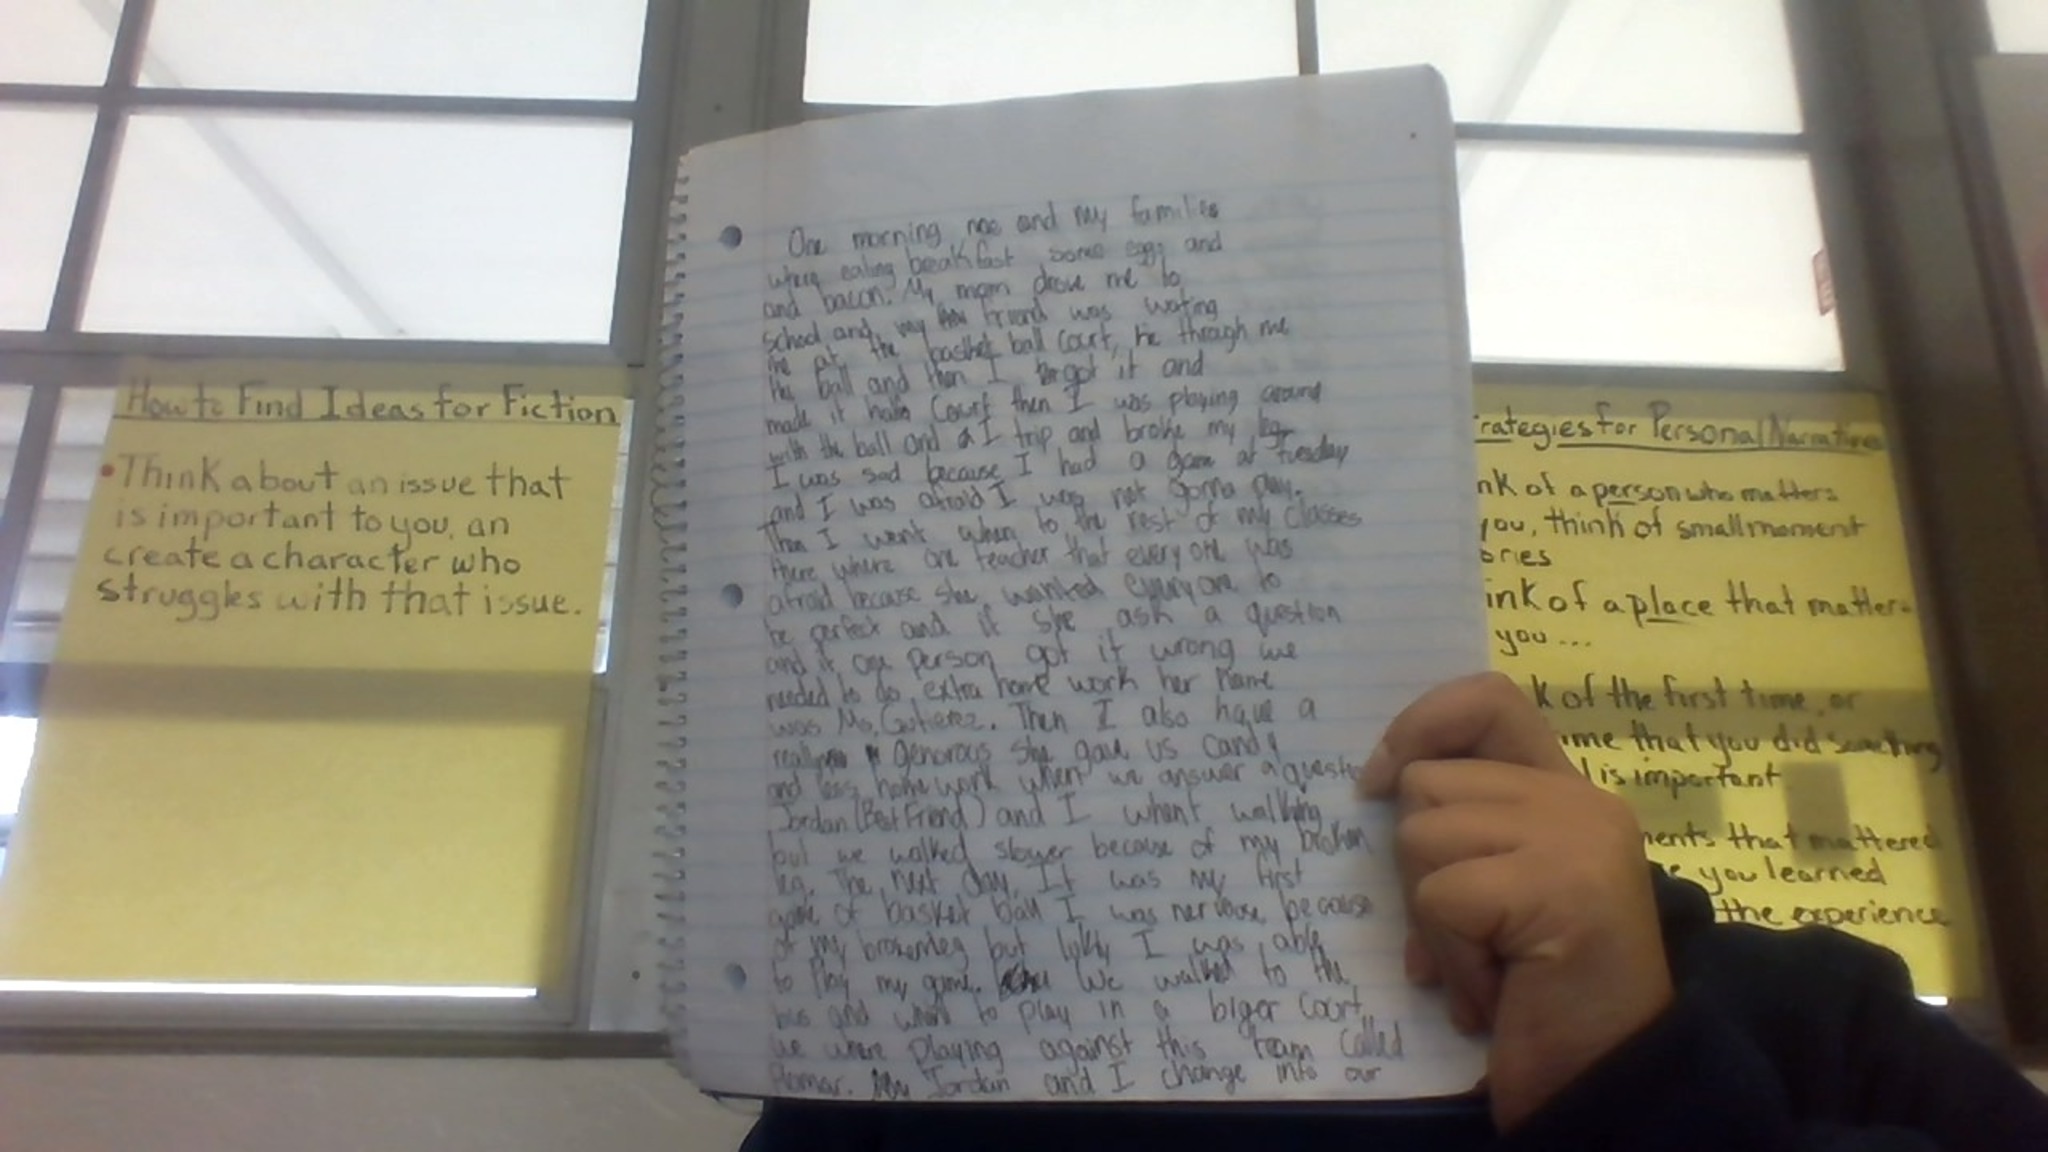 How to Find Ideas for Fiction
• Think about an issue that
is important to you, an
create a character who
struggles with that issue.
One morning me and my families
where eating breakfast some eggs and
and bacon. My mom drove me to
school and my friend was wating
me at the basket ball court, he through me
the ball and then I got it and
made it half court then I was playing around
with the ball and I trip and broke my leg
I was sad because I had a game at Tuesday
and I was afraid I was not gonna play.
Then I went to the rest of my classes
there where one teacher that every one was
afraid because she wanted everyone to
be perfect and if she ask a question
and if one person got it wrong we
needed to do extra home work her name
was Ms. Gutierez. Then I also have a
really generous she gave us candy
and less home work when we answer a questio
Jordan (Best Friend) and I whent walking
but we walked slower because of my broken
leg. The next day, It was my first
game of basket ball I was nervose because
of my brokenleg but lukly I was able
to Play my game. We walked to the
bus and went to play in a biger court.
we where playing against this team called
Jordan and I change into our
rategies for Personal Narrative
nk of a person who matters
you, think of small moment
ories
ink of a place that matter
you...
k of the first time, or
ime that you did something
l is important
ents that mattered
e you learned
the experience